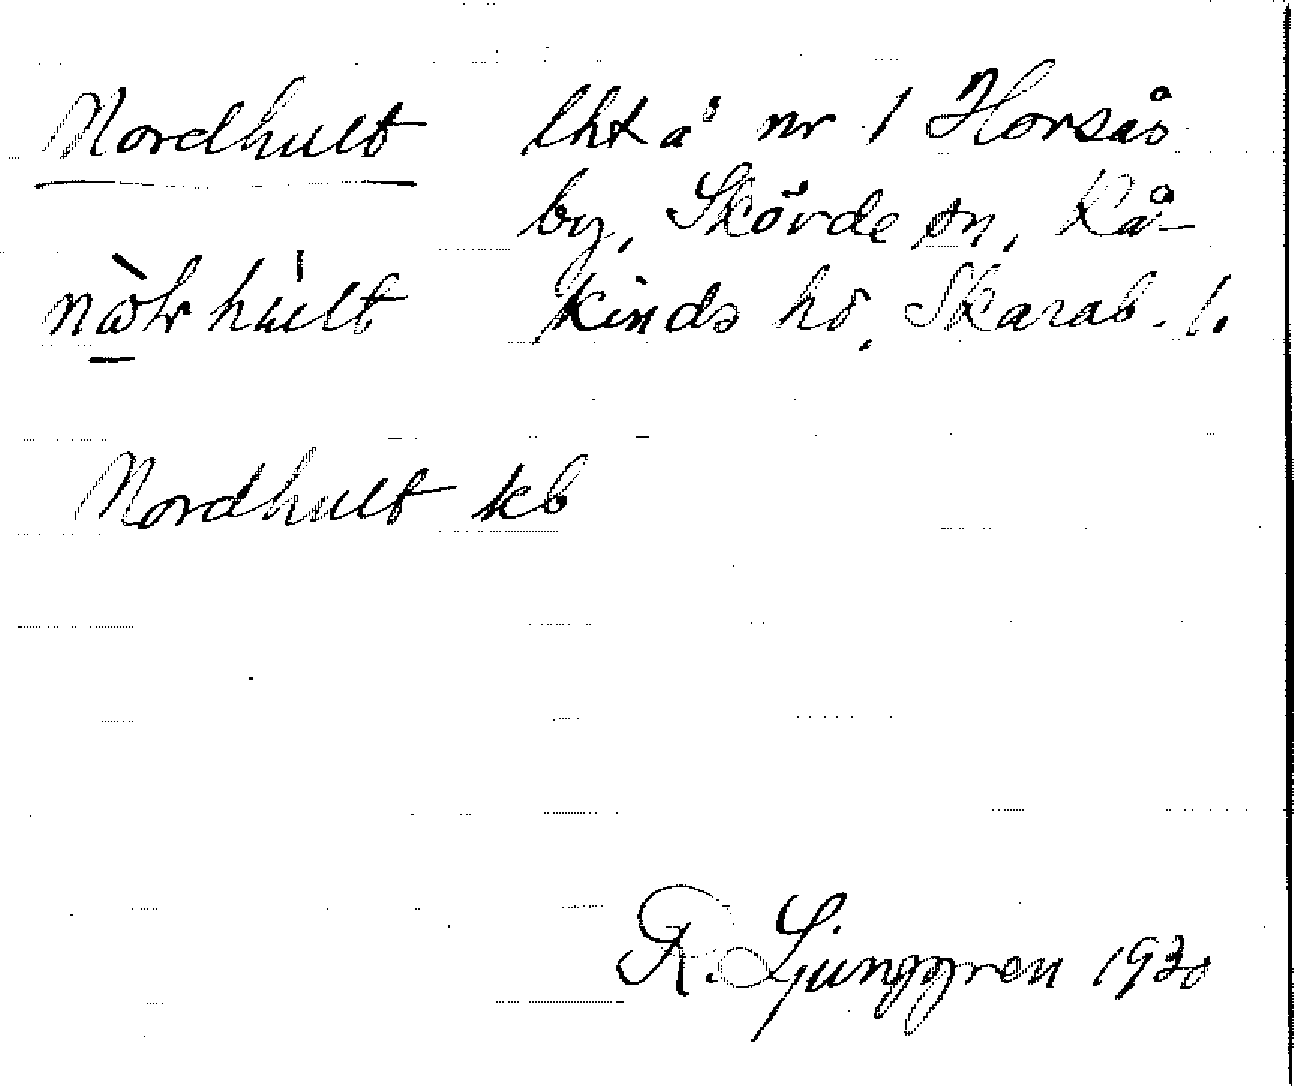 Nordhult lht å nr 1 Horsås
by, Skövde sn, Kå-
kinds hd, Skarab. l.
Nordhult kb
R. Ljunggren 1930